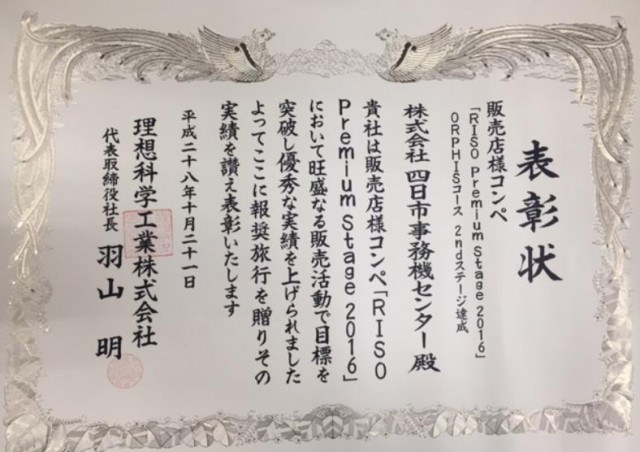 表彰状
販売店様コンペ
「RISO Premium Stage 2016」
ORPHISコース 2ndステージ達成
株式会社 四日市事務機センター 殿
貴社は販売店様コンペ「RISO
Premium Stage 2016」
において旺盛なる販売活動で目標を
突破し優秀な実績を上げられました
よってここに報奨旅行を贈りその
実績を讃え表彰いたします
平成二十八年十月二十一日
理想科学工業株式会社
代表取締役社長 羽山 明